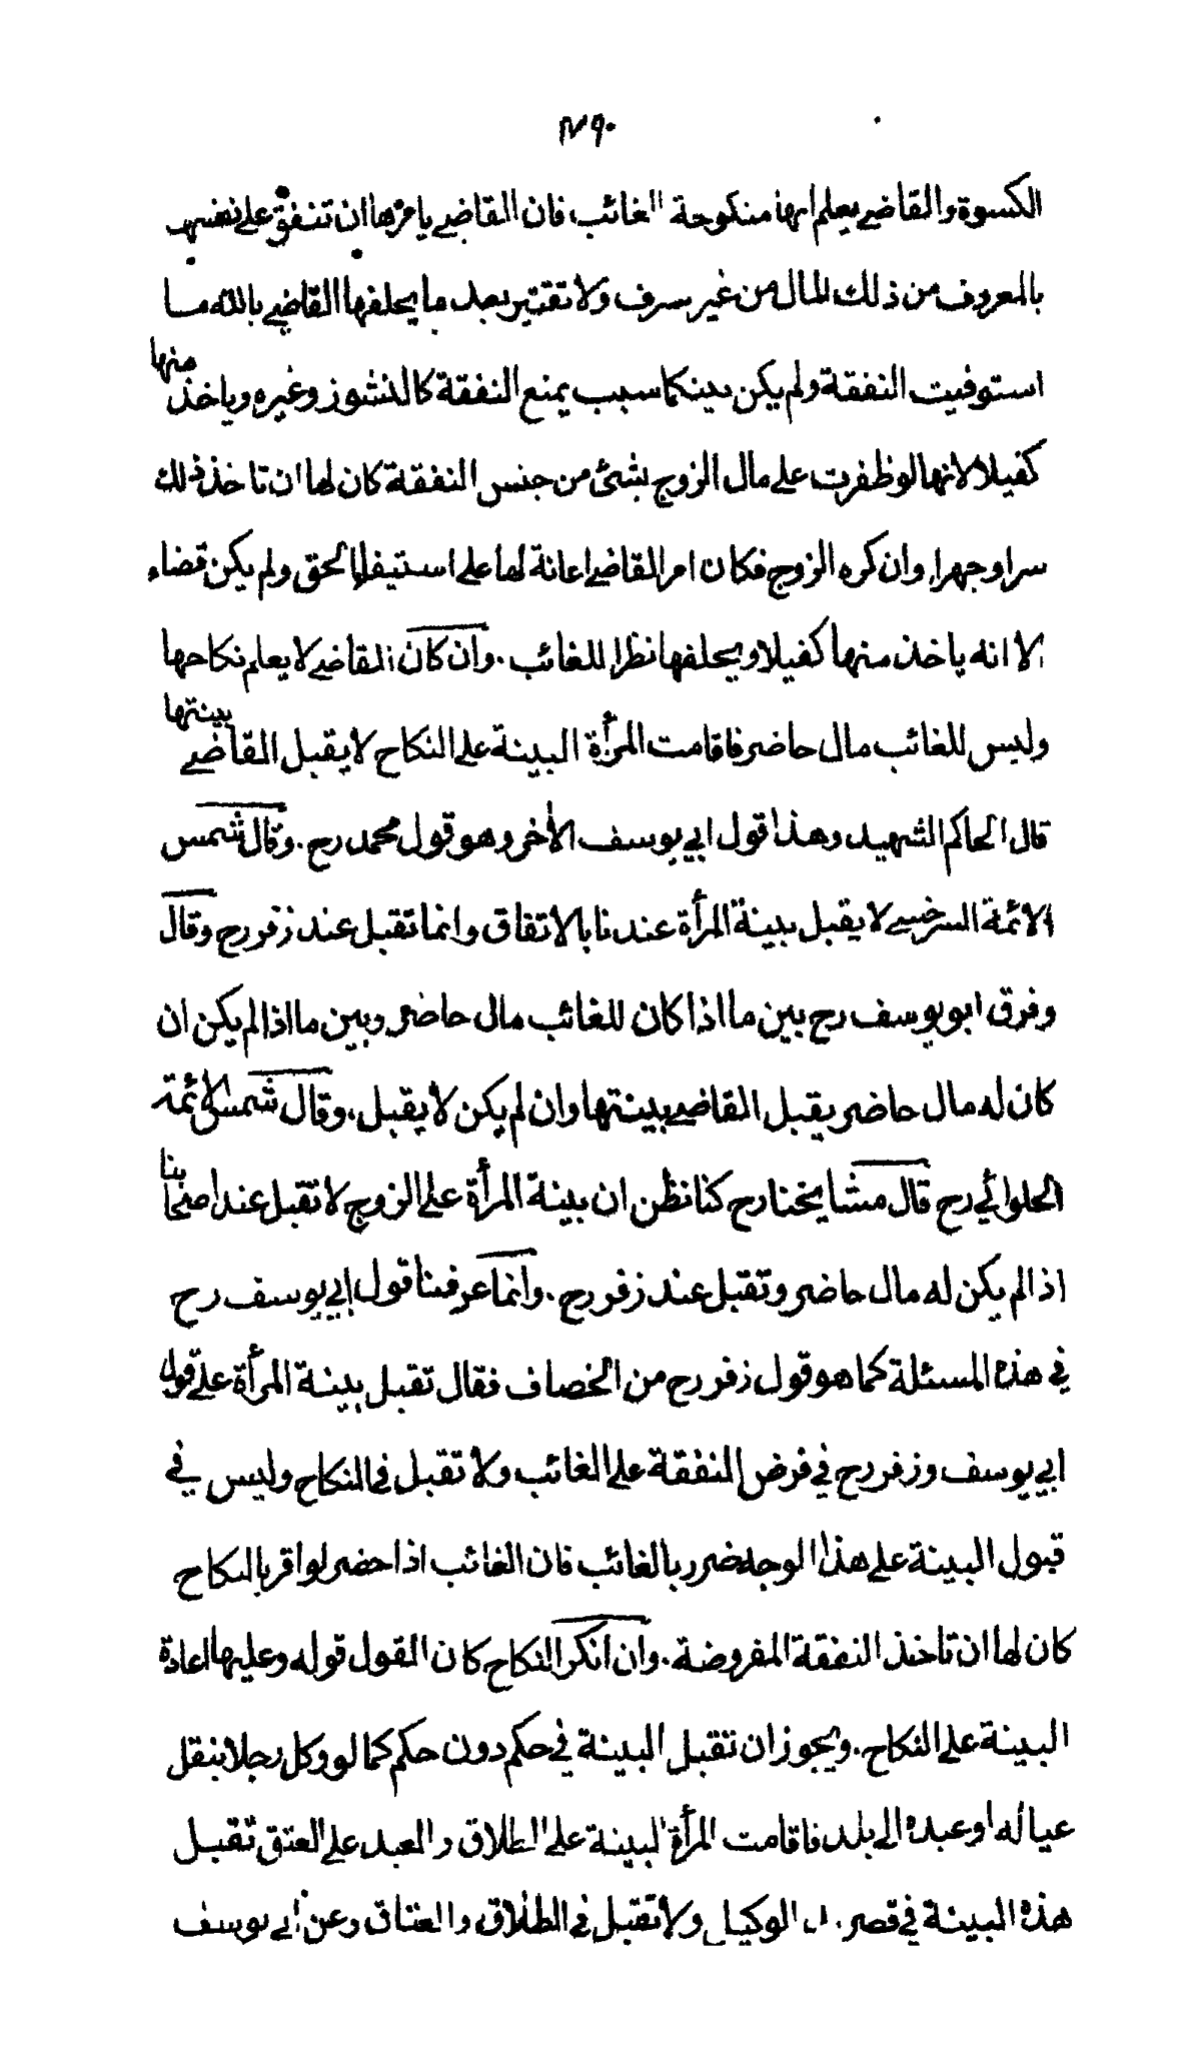 ٧٩٠
الكسوة والقاضي يعلم انها منكوحة الغائب فان القاضي يامرها ان تنفق على نفسها
بالمعروف من ذلك المال من غير سرف ولا تقتير بعد ما يحلفها القاضي بالله ما
استوفيت النفقة ولم يكن بينكما سبب يمنع النفقة كالنشوز وغيره وياخذ منها
كفيلا لانها لو ظفرت على مال الزوج بشئ من جنس النفقة كان لها ان تاخذ ذلك
سرا وجهرا وان كره الزوج فكان امر القاضي اعانة لها على استيفاء الحق ولم يكن قضاء
الا انه ياخذ منها كفيلا ويحلفها نظرا للغائب . وان كان القاضي لا يعلم نكاحها
وليس للغائب مال حاضر فاقامت المرأة البينة على النكاح لا يقبل القاضي بينتها
قال الحاكم الشهيد وهذا قول ابي يوسف الأخر وهو قول محمد رح . وقال شمس
الائمة السرخسي لا يقبل بينة المرأة عندنا بالاتفاق وانما تقبل عند زفر رح وقال
وفرق ابو يوسف رح بين ما اذا كان للغائب مال حاضر وبين ما اذا لم يكن ان
كان له مال حاضر يقبل القاضي بينتها وان لم يكن لا يقبل . وقال شمس الائمة
الحلوائي رح قال مشايخنا رح كنا نظن ان بينة المرأة على الزوج لا تقبل عند اصحابنا
اذا لم يكن له مال حاضر وتقبل عند زفر رح . وانما عرفنا قول ابي يوسف رح
في هذه المسئلة كما هو قول زفر رح من الخصاف فقال تقبل بينة المرأة على قول
ابي يوسف وزفر رح في فرض النفقة على الغائب ولا تقبل في النكاح وليس في
قبول البينة على هذا الوجه ضرر بالغائب فان الغائب اذا حضر لو اقر بالنكاح
كان لها ان تاخذ النفقة المفروضة . وان انكر النكاح كان القول قوله وعليها اعادة
البينة على النكاح . ويجوز ان تقبل البينة في حكم دون حكم كما لو وكل رجلا بنقل
عياله او عبده الى بلد فاقامت المرأة البينة على الطلاق والعبد على العتق تقبل
هذه البينة في قصر الوكيل ولا تقبل في الطلاق والعتاق وعن ابي يوسف